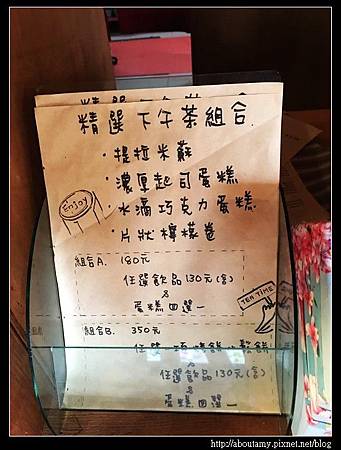 精選下午茶組合
・提拉米蘇
・濃厚起司蛋糕
・水滴巧克力蛋糕
・片狀檸檬卷
Enjoy
組合A. 180元
任選飲品130元(含)
&
蛋糕四選一
TEA TIME
組合B. 350元
任選一項
鬆餅
&
任選飲品130元(含)
&
蛋糕四選一
http://aboutamy.pixnet.net/blog